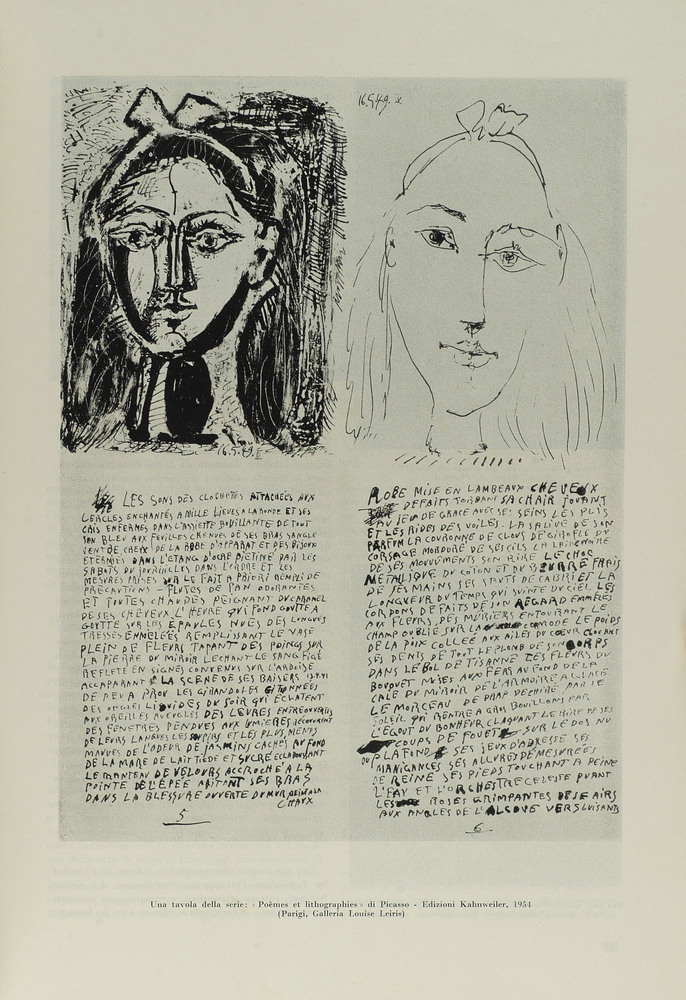 16.5.49. II
16.5.49. IV
LES SONS DES CLOCHETTES ATTACHÉES AUX
CERCLES ENCHANTÉS A MILLE LIEUES A LA RONDE ET SES
CRIS ENFERMÉS DANS L'ASSIETTE BOUILLANTE DE TOUT
SON BLEU AUX FEUILLES CHENUES DE SES BRAS SANGLE
VENT DE CHEUX DE LA ROBE D'APPARAT ET DES BIJOUX
ETERNÉS DANS L'ETANG D'OCRE PIETINÉ PAR LES
SABOTS DU DANS L'ORDRE ET LES
MESURES PRISES SUR LE FAIT A PRIORI REMPLI DE
PRECAUTIONS - FLUTES DE PAN ODORANTES
ET TOUTES CHAUDES PEIGNANT DU CARAMEL
DE SES CHEVEUX L'HEURE QUI FOND GOUTTE A
GOUTTE SUR LES EPAULES NUES DES LONGUES
TRESSES EMMELÉES REMPLISSANT LE VASE
PLEIN DE FLEURS TAPANT DES POINGS SUR
LA PIERRE DU MIROIR LECHANT LE SANG FIGÉ
REFLETÉ EN SIGNES CONVENUS SUR L'ARDOISE
ACCAPARANT LA SCENE DE SES BAISERS
DE PEU A PROU LES GIRANDOLES
DES ONGLES LIQUIDES DU SOIR QUI ECLATENT
AUX OREILLES AVEUGLES DES LEVRES ENTREOUVERTES
DES FENETRES PENDUES AUX LUMIERES
DE LEURS LANGUES LES SOUPIRS ET LES PLUS MENTS
MAUVES DE L'ODEUR DE JASMINS CACHÉS AU FOND
DE LA MARE DE LAIT TIEDE ET SUCRÉ ECLABOUSSANT
LE MANTEAU DE VELOURS ACCROCHÉ A LA
POINTE DE L'EPEE AGITANT SES BRAS
DANS LA BLESSURE OUVERTE DU MUR PEINT A LA
CHAUX
5
ROBE MISE EN LAMBEAUX CHEVEUX
DEFAITS TORDANT SA CHAIR JOUANT
AU JEU DE GRACE AVEC SES SEINS LES PLIS
ET LES RIDES DES VOILES. LA SALIVE DE SON
PARFUM LA COURONNE DE CLOUS DE GIROFLE DU
CORSAGE MORDORÉ DE SES CILS
DE SES MOUVEMENTS SON RIRE LE CHOC
METALLIQUE DU COTON ET DU BEURRE FRAIS
DE SES MAINS SES SAUTS DE CABRI ET LA
LONGUEUR DU TEMPS QUI SUINTE DU CIEL LES
CORDONS DEFAITS DE SON REGARD EMMÊLÉS
AUX FLEURS DES MURIERS ENTOURANT LE
CHAMP OUBLIÉ SUR LA COMMODE LE POIDS
DE LA POIX COLLÉE AUX AILES DU CŒUR CLOUANT
SES DENTS DE TOUT LE PLOMB DE SON CORPS
DANS LE BOL DE TISANNE DES FLEURS DU
BOUQUET MISES AUX FERS AU FOND DE LA
CALE DU MIROIR DE L'ARMOIRE A GLACE
LE MORCEAU DE DRAP DECHIRÉ PAR LE
SOLEIL QUI RENTRE A GROS BOUILLONS PAR
L'EGOUT DU BONHEUR CLAQUANT LE RIRE DE SES
COUPS DE FOUET SUR LE DOS NU
DU PLAFOND SES JEUX D'ADRESSE SES
MANIGANCES SES ALLURES DEMESURÉES
DE REINE SES PIEDS TOUCHANT A PEINE
L'EAU ET L'ORCHESTRE CELESTE PUANT
LES ROSES GRIMPANTES DE SE AIRS
AUX ANGLES DE L'ALCOVE VERS LUISANTS
6
Una tavola della serie: «Poèmes et lithographies» di Picasso - Edizioni Kahnweiler, 1954
(Parigi, Galleria Louise Leiris)